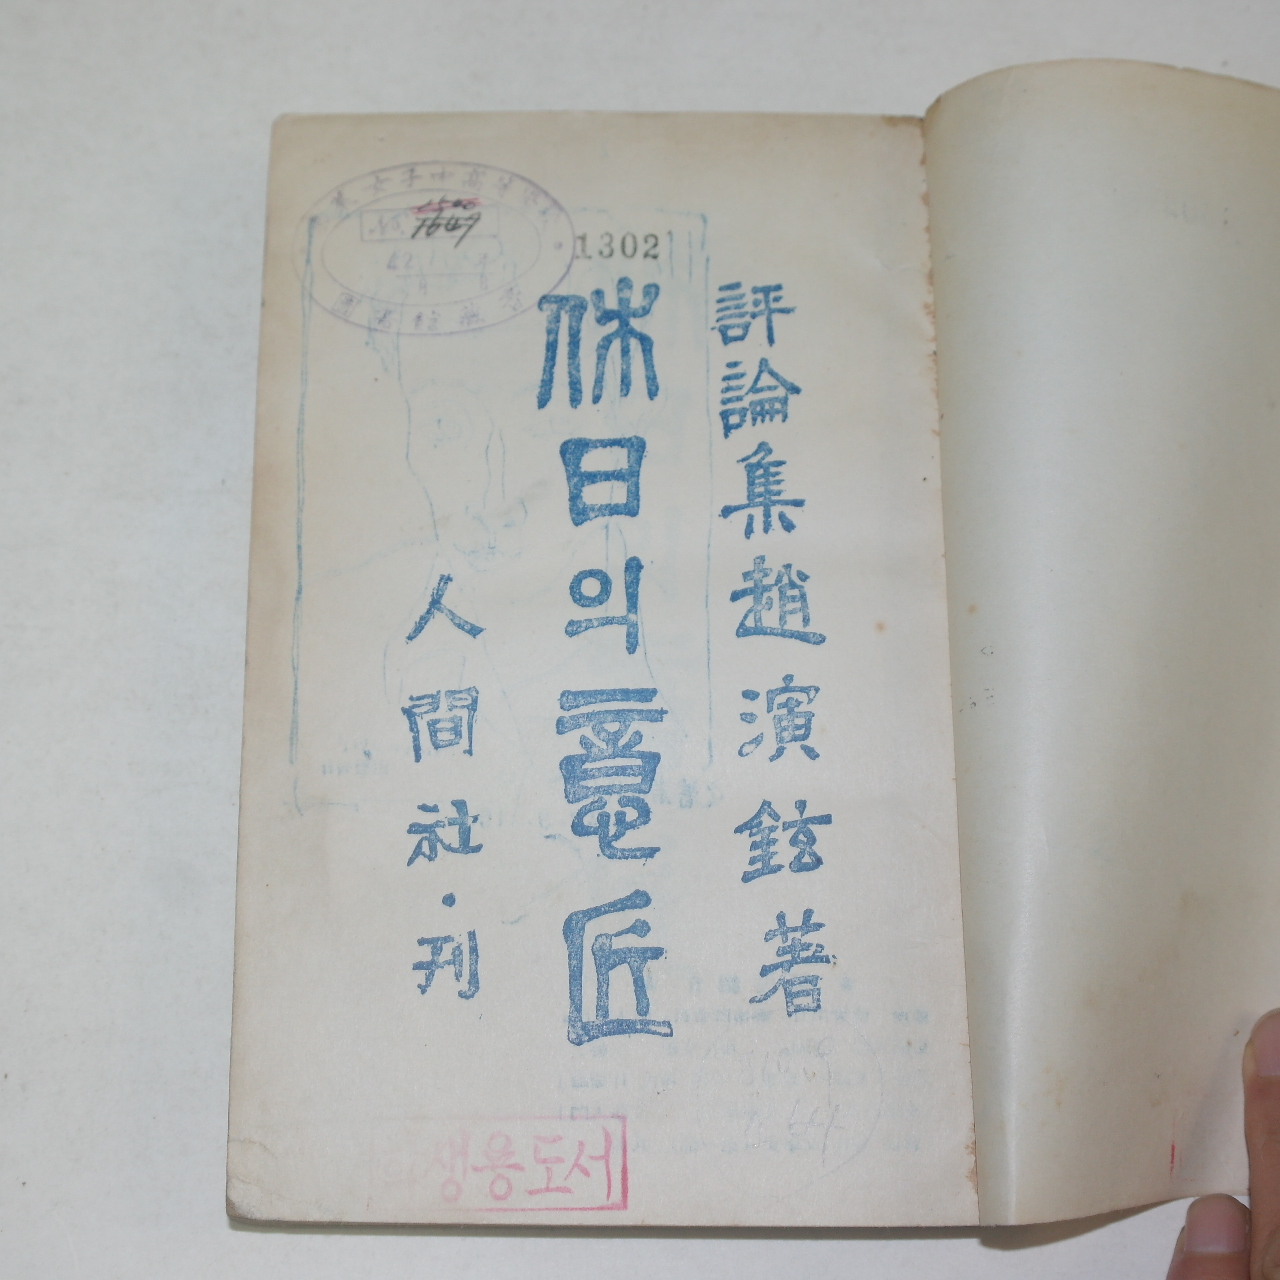 評論集 趙演鉉著
休日의意匠
人間社·刊
1302
1649
학생용도서